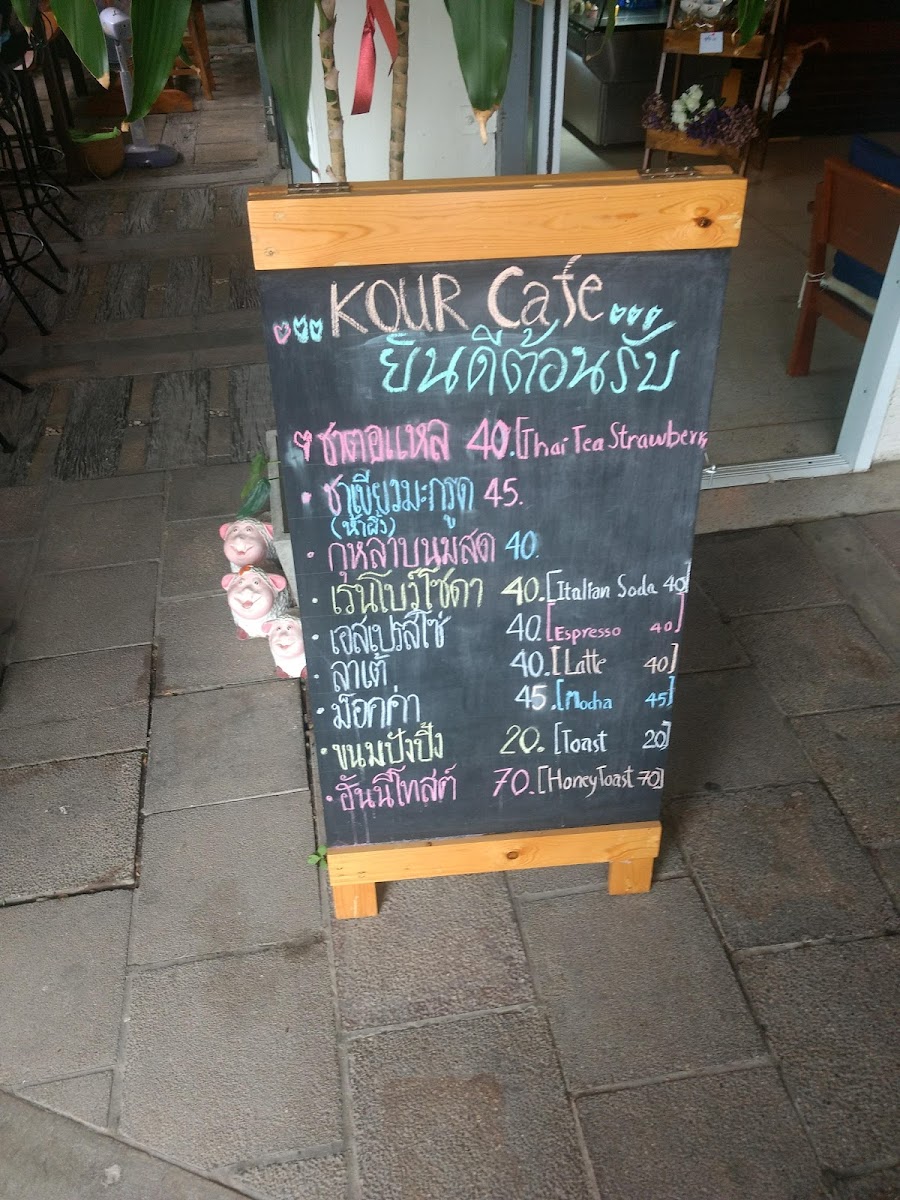 KOUR Cafe
ยินดีต้อนรับ
ชาตอแหล 40.[Thai Tea Strawberry
ชาเขียวมะกรูด 45.
(น้ำผึ้ง)
กุหลาบนมสด 40.
เรนโบว์โซดา 40.[Italian Soda 40]
เอสเปรสโซ่ 40.[Espresso 40]
ลาเต้ 40.[Latte 40]
ม็อคค่า 45.[Mocha 45]
ขนมปังปิ้ง 20.[Toast 20]
ฮันนี่โทสต์ 70.[Honey Toast 70]